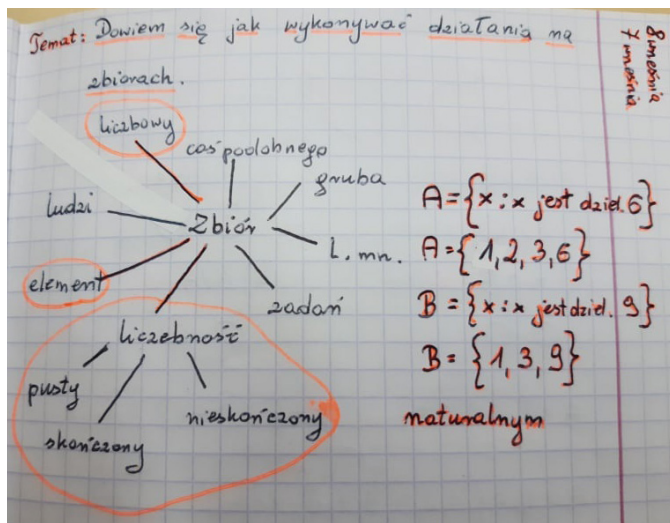 Temat: Dowiem się jak wykonywać działania na
zbiorach.
8 wrześnią
7 wrześnią
liczbowy
coś podobnego
gruba
ludzi
Zbiór
L. mn.
element
zadań
liczebność
pusty
skończony
nieskończony
A = {x : x jest dziel. 6}
A = {1, 2, 3, 6}
B = {x : x jest dziel. 9}
B = {1, 3, 9}
naturalnym